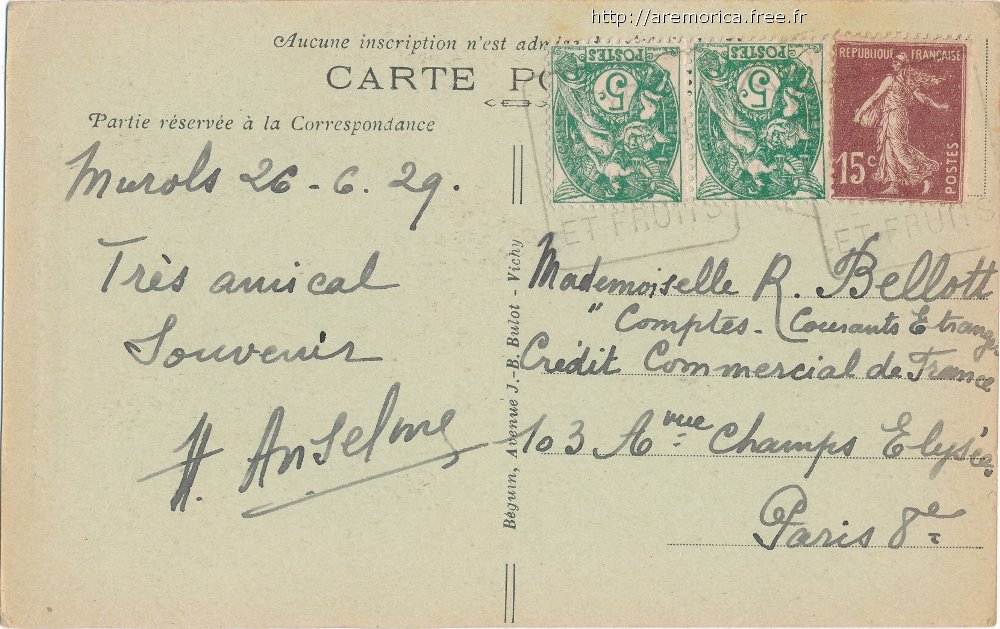 http://aremorica.free.fr
Aucune inscription n'est
CARTE
Partie réservée à la Correspondance
Murols 26-6.29.
Très amical
Souvenir
H. Anselme
Béguin, Avenue J.-B. Bulot - Vichy
POSTES
5c
POSTES
5c
RÉPUBLIQUE FRANÇAISE
15c
POSTES
ET FRUITS
ET FRUITS
Mademoiselle R. Bellott
" Comptes - Courants Etrang
Crédit Commercial de France
103 Avue Champs Elysées
Paris 8e